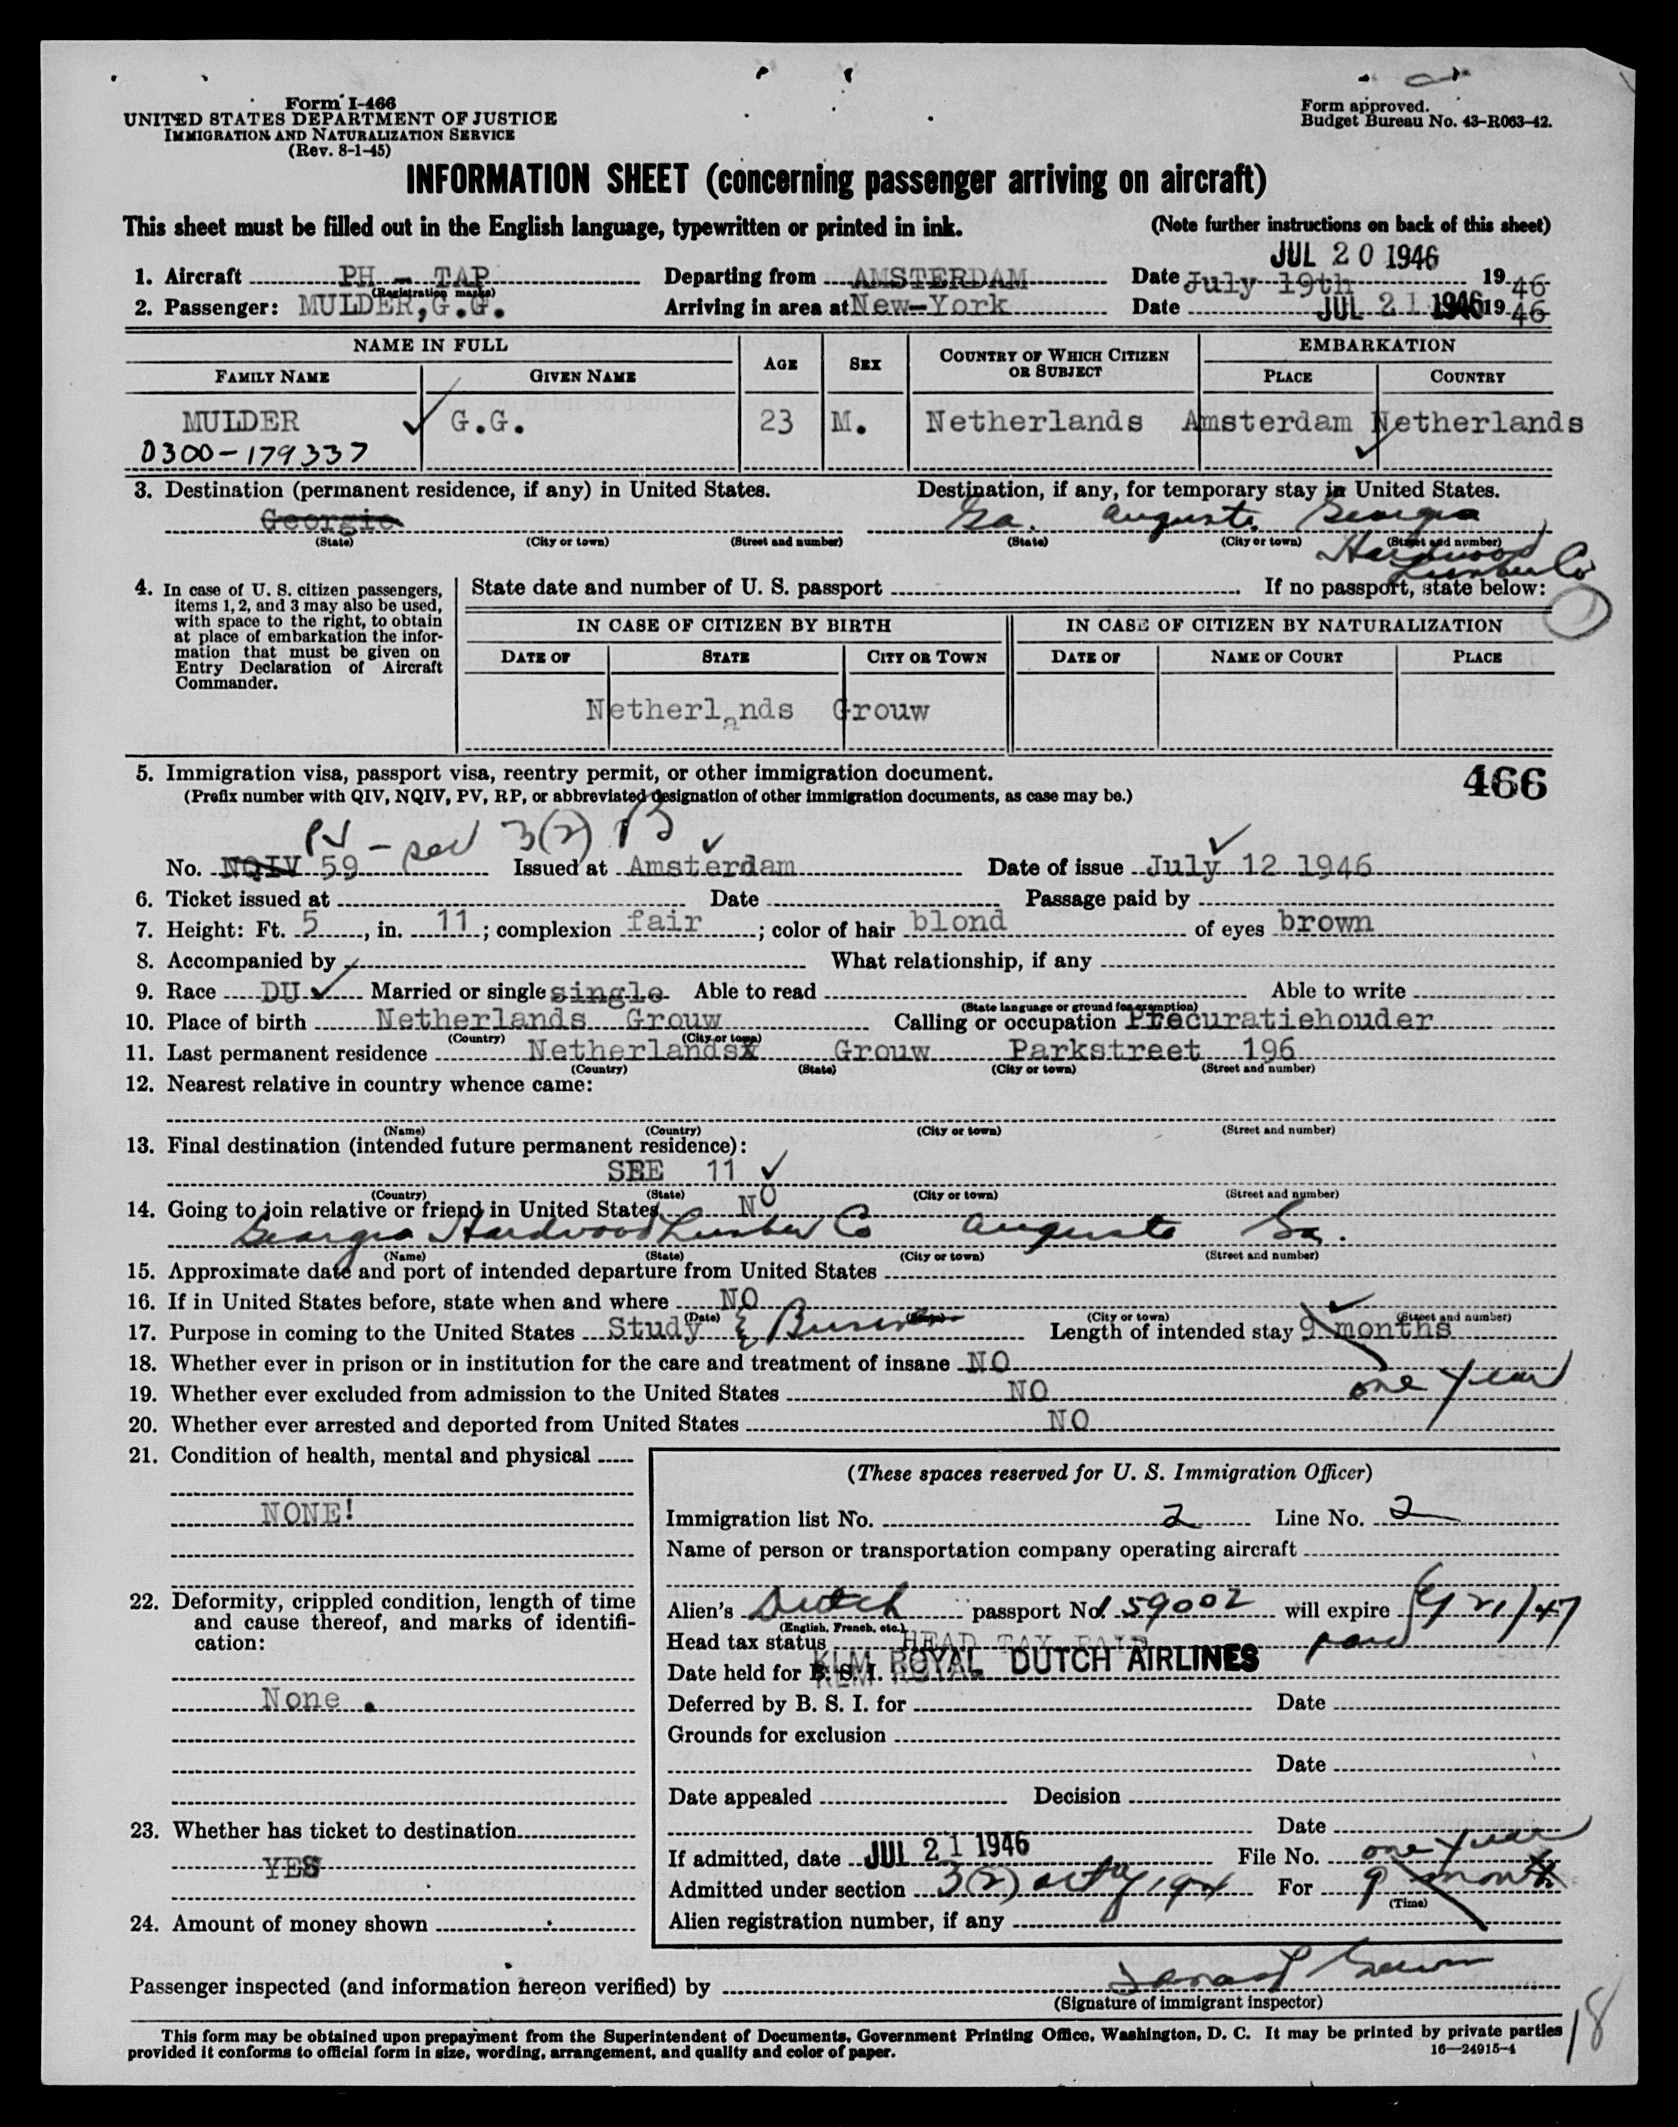 Form I-466
UNITED STATES DEPARTMENT OF JUSTICE
IMMIGRATION AND NATURALIZATION SERVICE
(Rev. 8-1-45)
Form approved.
Budget Bureau No. 43-R063-42.
INFORMATION SHEET (concerning passenger arriving on aircraft)
This sheet must be filled out in the English language, typewritten or printed in ink. (Note further instructions on back of this sheet)
JUL 20 1946
1. Aircraft PH - TAP Departing from AMSTERDAM Date July 19th 19 46
(Registration marks)
2. Passenger: MULDER, G.G. Arriving in area at New-York Date JUL 21 1946 19 46
NAME IN FULL AGE SEX COUNTRY OF WHICH CITIZEN OR SUBJECT EMBARKATION
FAMILY NAME GIVEN NAME PLACE COUNTRY
MULDER G.G. 23 M. Netherlands Amsterdam Netherlands
0300-179337
3. Destination (permanent residence, if any) in United States. Destination, if any, for temporary stay in United States.
Georgie Ga. Augusta Georgia
(State) (City or town) (Street and number) (State) (City or town) (Street and number)
Hardwood
Lumber Co
4. In case of U. S. citizen passengers, items 1, 2, and 3 may also be used, with space to the right, to obtain at place of embarkation the information that must be given on Entry Declaration of Aircraft Commander.
State date and number of U. S. passport If no passport, state below:
IN CASE OF CITIZEN BY BIRTH IN CASE OF CITIZEN BY NATURALIZATION
DATE OF STATE CITY OR TOWN DATE OF NAME OF COURT PLACE
Netherlands Grouw
5. Immigration visa, passport visa, reentry permit, or other immigration document. 466
(Prefix number with QIV, NQIV, PV, RP, or abbreviated designation of other immigration documents, as case may be.)
PV - 3(2) B
No. NQIV 59 Issued at Amsterdam Date of issue July 12 1946
6. Ticket issued at Date Passage paid by
7. Height: Ft. 5, in. 11; complexion fair; color of hair blond of eyes brown
8. Accompanied by What relationship, if any
9. Race DU Married or single single Able to read Able to write
(State language or ground for exemption)
10. Place of birth Netherlands Grouw Calling or occupation Procuratiehouder
(Country) (City or town)
11. Last permanent residence Netherlandsx Grouw Parkstreet 196
(Country) (State) (City or town) (Street and number)
12. Nearest relative in country whence came:
(Name) (Country) (City or town) (Street and number)
13. Final destination (intended future permanent residence):
SEE 11
(Country) (State) (City or town) (Street and number)
14. Going to join relative or friend in United States NO
Georgia Hardwood Lumber Co Augusta Ga.
(Name) (State) (City or town) (Street and number)
15. Approximate date and port of intended departure from United States
16. If in United States before, state when and where NO
(Date) (City or town) (Street and number)
17. Purpose in coming to the United States Study & Business Length of intended stay 9 months
18. Whether ever in prison or in institution for the care and treatment of insane NO
19. Whether ever excluded from admission to the United States NO one year
20. Whether ever arrested and deported from United States NO
21. Condition of health, mental and physical
NONE!
22. Deformity, crippled condition, length of time and cause thereof, and marks of identification:
None.
23. Whether has ticket to destination
YES
24. Amount of money shown
(These spaces reserved for U. S. Immigration Officer)
Immigration list No. 2 Line No. 2
Name of person or transportation company operating aircraft
Alien's Dutch passport No. 59002 will expire 21/47
(English, French, etc.)
Head tax status HEAD TAX PAID paid
Date held for B. S. I. KLM ROYAL DUTCH AIRLINES
Deferred by B. S. I. for Date
Grounds for exclusion
Date
Date appealed Decision
Date
one year
If admitted, date JUL 21 1946 File No.
Admitted under section 3(2) For 9 months
(Time)
Alien registration number, if any
Passenger inspected (and information hereon verified) by
(Signature of immigrant inspector)
This form may be obtained upon prepayment from the Superintendent of Documents, Government Printing Office, Washington, D. C. It may be printed by private parties
provided it conforms to official form in size, wording, arrangement, and quality and color of paper.
16—24915-1
18